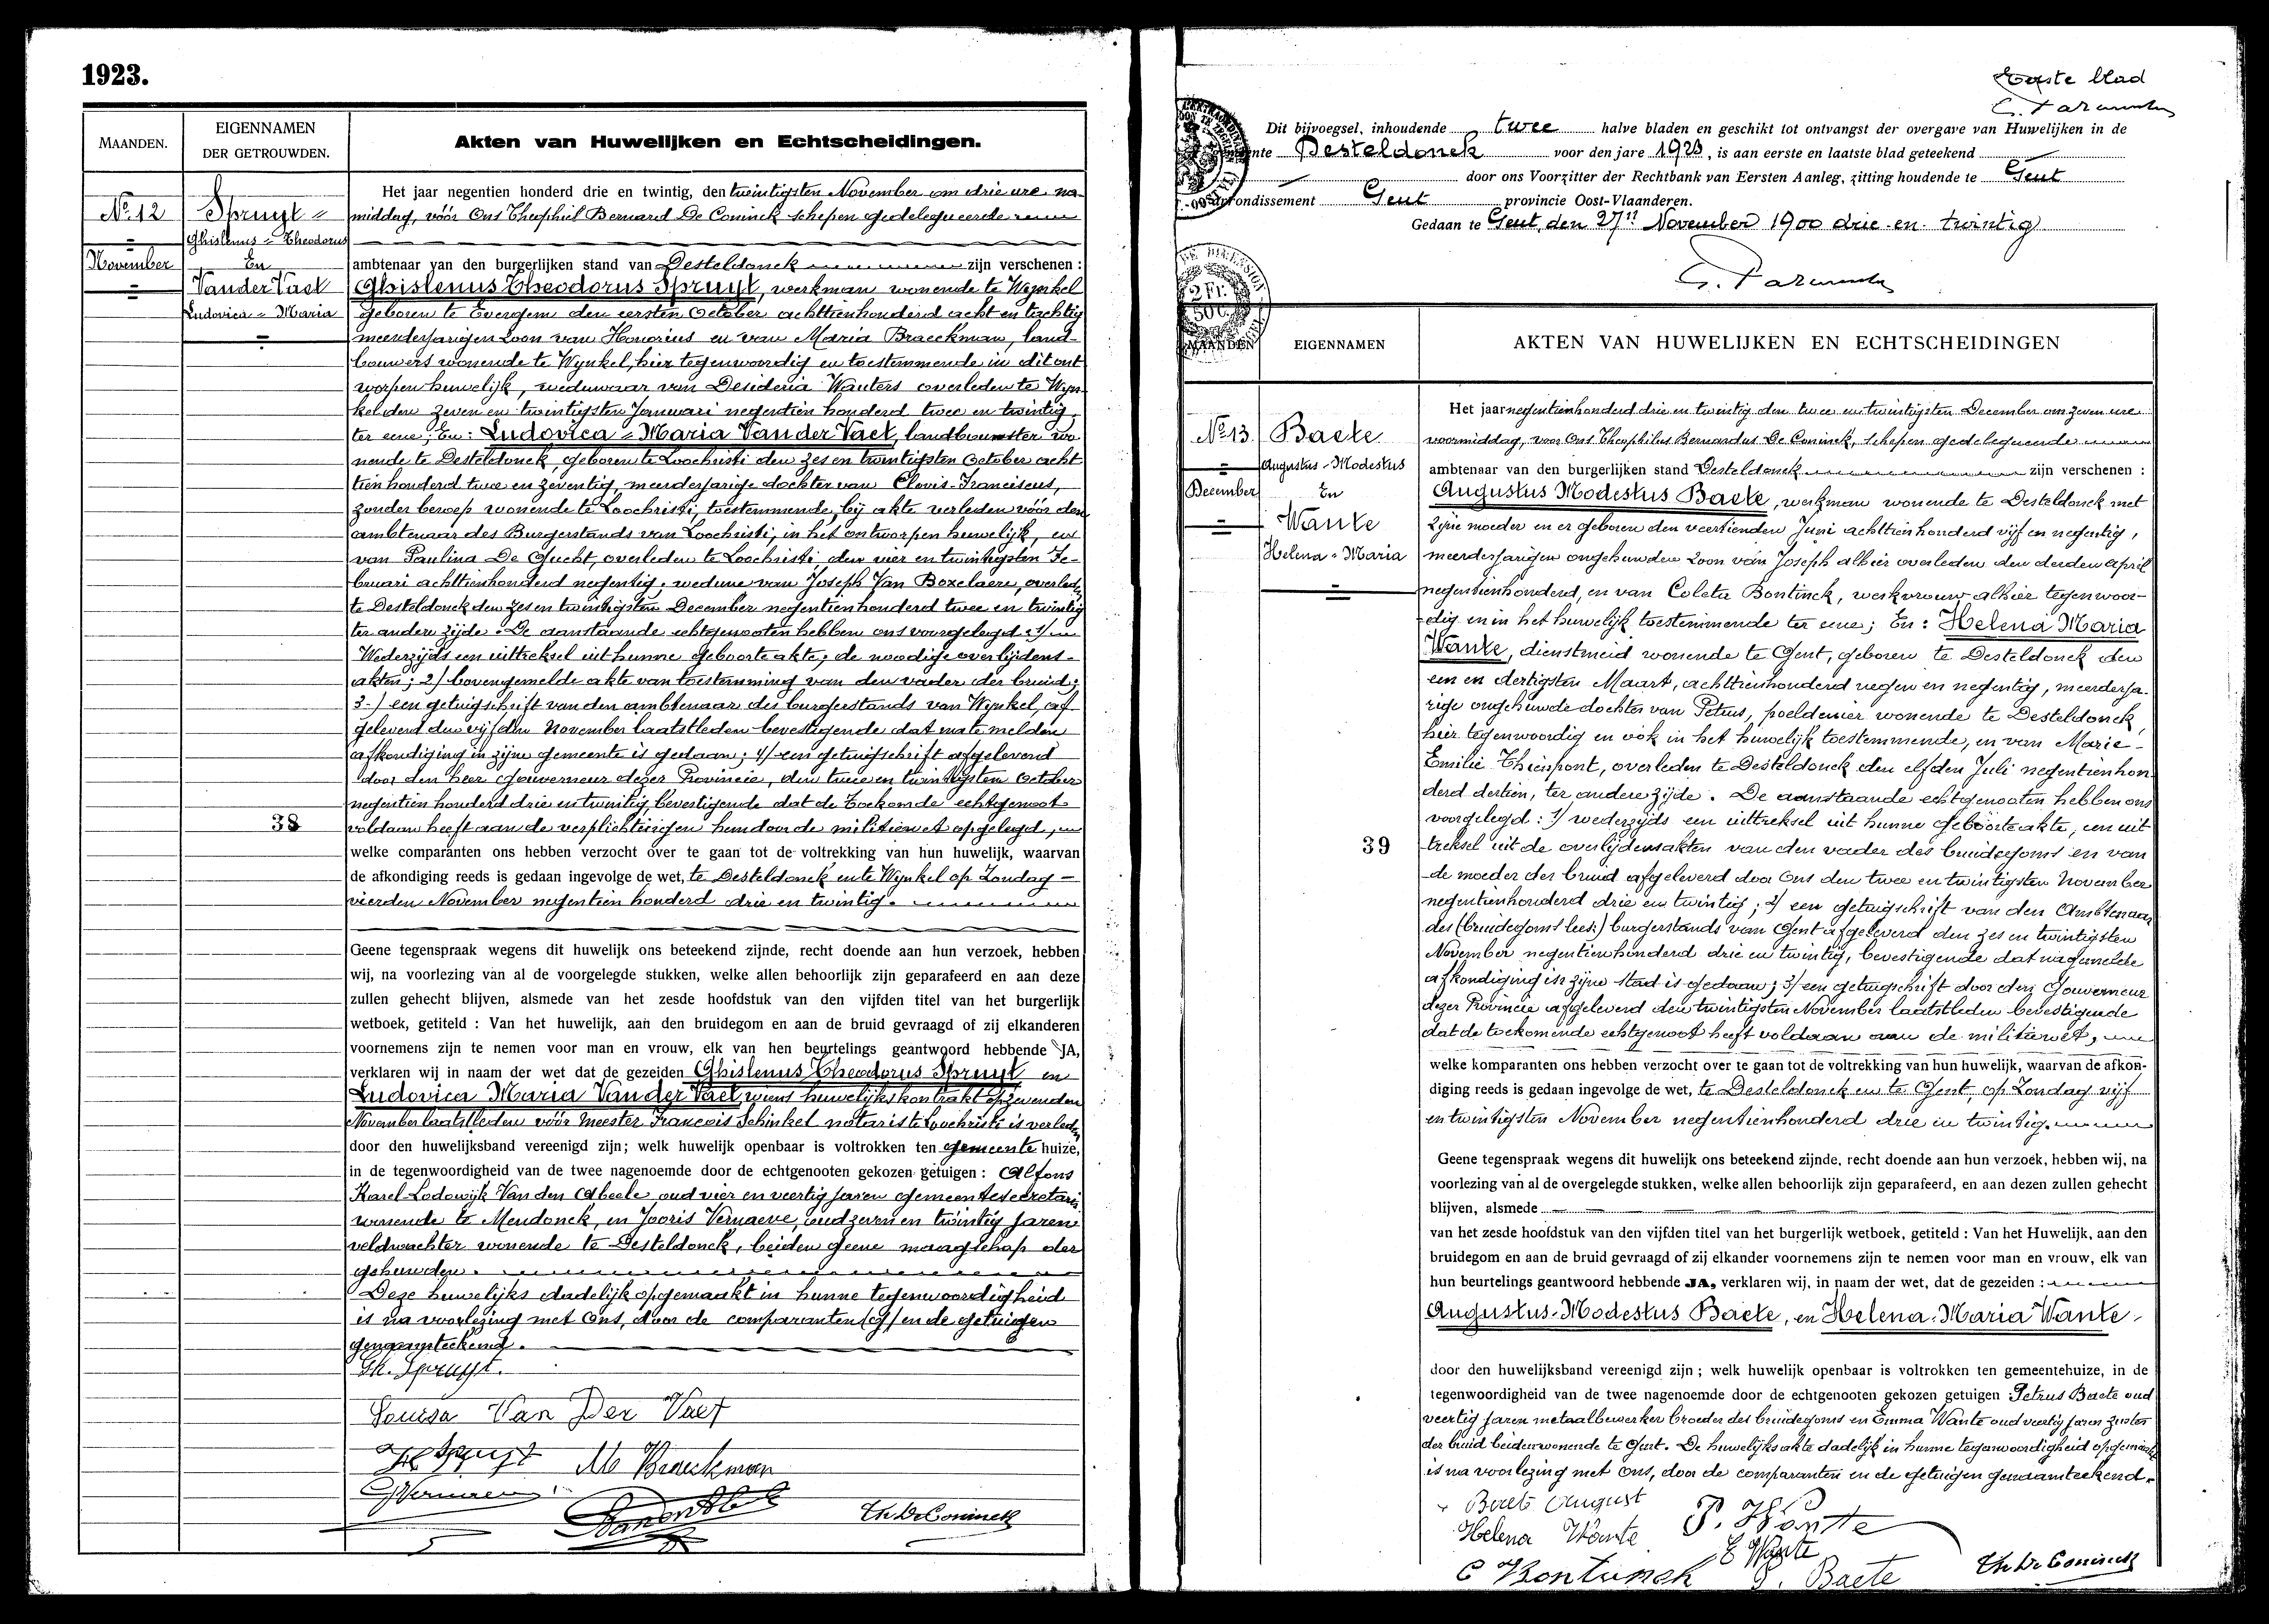 1923.
MAANDEN.
EIGENNAMEN
DER GETROUWDEN.
Akten van Huwelijken en Echtscheidingen.
No. 12
November
Spruyt =
Ghislenus = Theodorus
En
Van der Vaet
Ludovica = Maria
38
Het jaar negentien honderd drie en twintig, den twintigsten November om drie ure na-
middag, vóór Ons Theophiel Bernard De Coninck schepen gedelegueerde
ambtenaar van den burgerlijken stand van Desteldonck zijn verschenen :
Ghislenus Theodorus Spruyt, werkman wonende te Wynkel
geboren te Evergem den eersten October achttienhonderd acht en tachtig
meerderjarigen zoon van Honorius en van Maria Braeckman, land-
bouwers wonende te Wynkel, hier tegenwoordig en toestemmende in dit ont
worpen huwelijk, weduwaar van Desideria Wauters overleden te Wyn-
kel den zeven en twintigsten Januari negentien honderd twee en twintig,
ter eene; En: Ludovica = Maria Van der Vaet, landbouwster wo
nende te Desteldonck, geboren te Loochristi den zes en twintigsten October acht
tien honderd twee en zeventig, meerderjarige dochter van Clovis-Franciscus,
zonder beroep wonende te Loochristi, toestemmende, bij akte verleden vóór den
ambtenaar des Burgerstands van Loochristi, in het ontworpen huwelijk, en
van Paulina De Gucht, overleden te Loochristi, den vier en twintigsten Fe-
bruari achttienhonderd negentig; weduwe van Joseph Van Boxelaere, overleden
te Desteldonck den zes en twintigsten December negentien honderd twee en twintig
ter andere zijde. De aanstaande echtgenooten hebben ons voorgelegd: 1/
Wederzijds een uittreksel uit hunne geboorteakte; de noodige overlijdens-
akten; 2/ bovengemelde akte van toestemming van den vader der bruid;
3-/ een getuigschrift van den ambtenaar des burgerstands van Wynkel, af
geleverd den vijfden November laatstleden bevestigende dat nate melden
afkondiging in zijne gemeente is gedaan; 4/ een getuigschrift afgeleverd
door den heer Gouverneur dezer Provincie, den twee en twintigsten October
negentien honderd drie en twintig, bevestigende dat de toekomende echtgenoot
voldaan heeft aan de verplichtingen hem door de militiewet opgelegd,
welke comparanten ons hebben verzocht over te gaan tot de voltrekking van hun huwelijk, waarvan
de afkondiging reeds is gedaan ingevolge de wet, te Desteldonck en te Wynkel op Zondag -
vierden November negentien honderd drie en twintig.
Geene tegenspraak wegens dit huwelijk ons beteekend zijnde, recht doende aan hun verzoek, hebben
wij, na voorlezing van al de voorgelegde stukken, welke allen behoorlijk zijn geparafeerd en aan deze
zullen gehecht blijven, alsmede van het zesde hoofdstuk van den vijfden titel van het burgerlijk
wetboek, getiteld : Van het huwelijk, aan den bruidegom en aan de bruid gevraagd of zij elkanderen
voornemens zijn te nemen voor man en vrouw, elk van hen beurtelings geantwoord hebbende JA,
verklaren wij in naam der wet dat de gezeiden Ghislenus Theodorus Spruyt en
Ludovica Maria Van der Vaet, wiens huwelijkskontrakt op zevenden
November laatstleden vóór meester François Schinkel notaris te Loochristi is verleden
door den huwelijksband vereenigd zijn; welk huwelijk openbaar is voltrokken ten gemeente huize,
in de tegenwoordigheid van de twee nagenoemde door de echtgenooten gekozen getuigen : Alfons
Karel Lodewijk Van den Abeele, oud vier en veertig jaren gemeentesecretaris
wonende te Mendonck, en Jooris Vernaeve, oud zeven en twintig jaren
veldwachter wonende te Desteldonck, beiden geene maagschap der
gehuwden.
Deze huwelijks dadelijk opgemaakt in hunne tegenwoordigheid
is na voorlezing met Ons, door de comparanten en de getuigen
genaamteekend.
Gh. Spruyt.
Louisa Van Der Vaet
H Spruyt M Braeckman
G Vernaeve
Th De Coninck
Eerste blad
Dit bijvoegsel, inhoudende twee halve bladen en geschikt tot ontvangst der overgave van Huwelijken in de
gemeente Desteldonck voor den jare 1923, is aan eerste en laatste blad geteekend
door ons Voorzitter der Rechtbank van Eersten Aanleg, zitting houdende te Gent
arrondissement Gent provincie Oost-Vlaanderen.
Gedaan te Gent, den 27n November 1900 drie en twintig
2 Fr.
50 C.
MAANDEN
EIGENNAMEN
AKTEN VAN HUWELIJKEN EN ECHTSCHEIDINGEN
No. 13
December
Baete
Augustus - Modestus
En
Wante
Helena = Maria
39
Het jaar negentienhonderd drie en twintig den twee en twintigsten December om zeven ure
voormiddag, voor Ons Theophilus Bernardus De Coninck, schepen gedelegueerde
ambtenaar van den burgerlijken stand Desteldonck zijn verschenen :
Augustus Modestus Baete, werkman wonende te Desteldonck met
zijne moeder en er geboren den veertienden Juni achttienhonderd vijf en negentig,
meerderjarigen ongehuwden zoon van Joseph alhier overleden den derden april
negentienhonderd, en van Coleta Bontinck, werkvrouw alhier tegenwoor-
dig en in het huwelijk toestemmende ter eene; En: Helena Maria
Wante, dienstmeid wonende te Gent, geboren te Desteldonck den
een en dertigsten Maart, achttienhonderd negen en negentig, meerderja-
rige ongehuwde dochter van Petrus, poeldenier wonende te Desteldonck,
hier tegenwoordig en ook in het huwelijk toestemmende, en van Marie-
Emilie Thienpont, overleden te Desteldonck den elfden Juli negentienhon
derd dertien, ter andere zijde. De aanstaande echtgenooten hebben ons
voorgelegd: 1/ wederzijds een uittreksel uit hunne geboorteakte, een uit
treksel uit de overlijdensakten van den vader des bruidegoms en van
de moeder der bruid afgeleverd door Ons den twee en twintigsten November
negentienhonderd drie en twintig; 2/ een getuigschrift van den Ambtenaar
des (bruidegoms lees:) burgerstands van Gent afgeleverd den zes en twintigsten
November negentienhonderd drie en twintig, bevestigende dat nagemelde
afkondiging in zijne stad is gedaan; 3/ een getuigschrift door den Gouverneur
dezer Provincie afgeleverd den twintigsten November laatstleden bevestigende
dat de toekomende echtgenoot heeft voldaan aan de militiewet,
welke komparanten ons hebben verzocht over te gaan tot de voltrekking van hun huwelijk, waarvan de afkon-
diging reeds is gedaan ingevolge de wet, te Desteldonck en te Gent, op Zondag vijf
en twintigsten November negentienhonderd drie in twintig.
Geene tegenspraak wegens dit huwelijk ons beteekend zijnde, recht doende aan hun verzoek, hebben wij, na
voorlezing van al de overgelegde stukken, welke allen behoorlijk zijn geparafeerd, en aan dezen zullen gehecht
blijven, alsmede
van het zesde hoofdstuk van den vijfden titel van het burgerlijk wetboek, getiteld : Van het Huwelijk, aan den
bruidegom en aan de bruid gevraagd of zij elkander voornemens zijn te nemen voor man en vrouw, elk van
hun beurtelings geantwoord hebbende JA, verklaren wij, in naam der wet, dat de gezeiden :
Augustus-Modestus Baete, en Helena-Maria Wante
door den huwelijksband vereenigd zijn ; welk huwelijk openbaar is voltrokken ten gemeentehuize, in de
tegenwoordigheid van de twee nagenoemde door de echtgenooten gekozen getuigen Petrus Baete oud
veertig jaren metaalbewerker broeder des bruidegoms en Emma Wante oud veertig jaren zuster
der bruid beiden wonende te Gent. De huwelijksakte dadelijk in hunne tegenwoordigheid opgemaakt
is na voorlezing met Ons, door de comparanten en de getuigen genaamteekend.
Baete August
Helena Wante P. Wante
E Wante
C Bontinck P. Baete
Th De Coninck